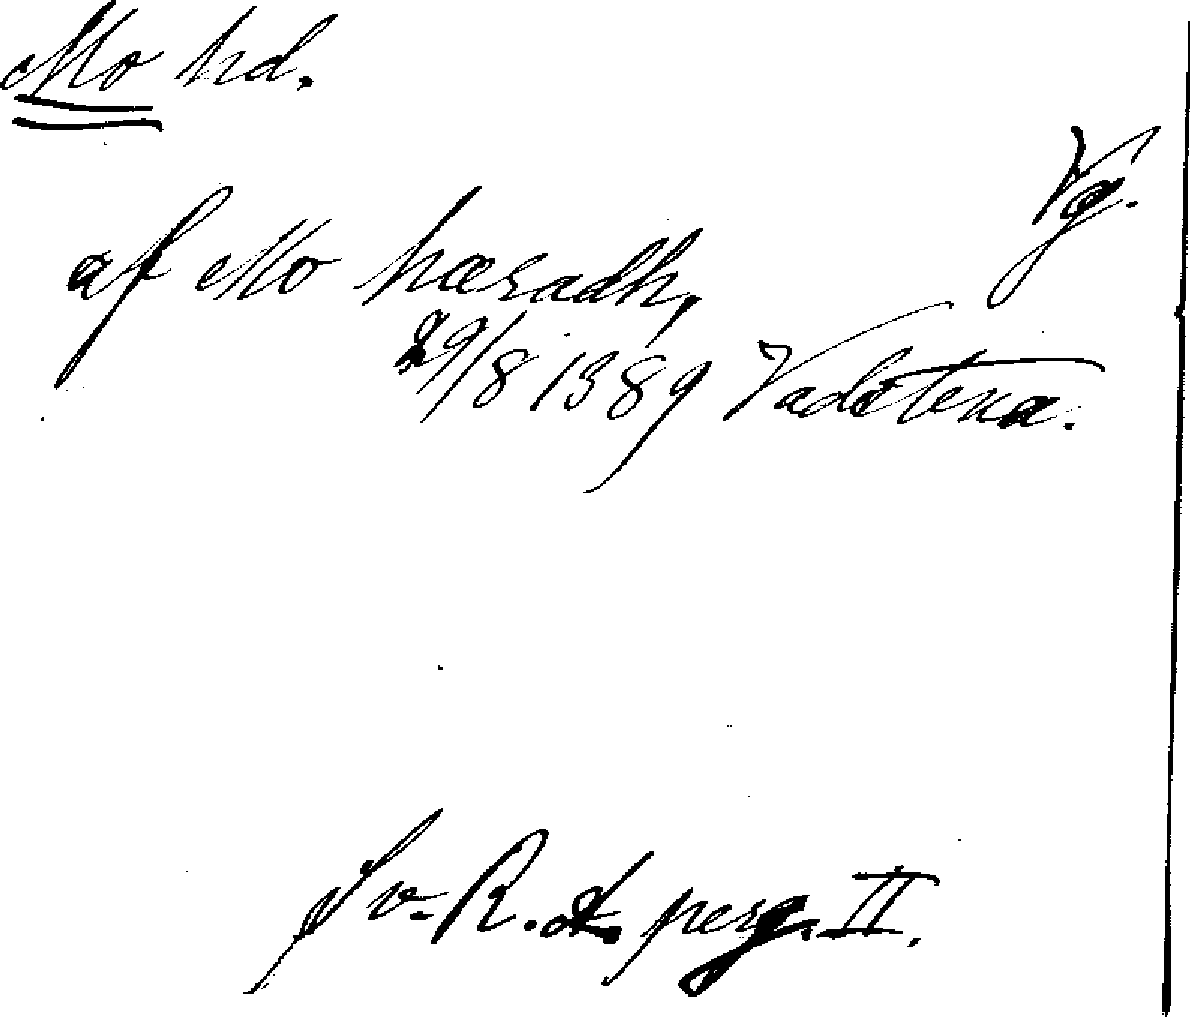 Mo hd.
Vg.
af Mo hæradh,
29/8 1389 Vadstena.
Sv. R. A. perg. II.